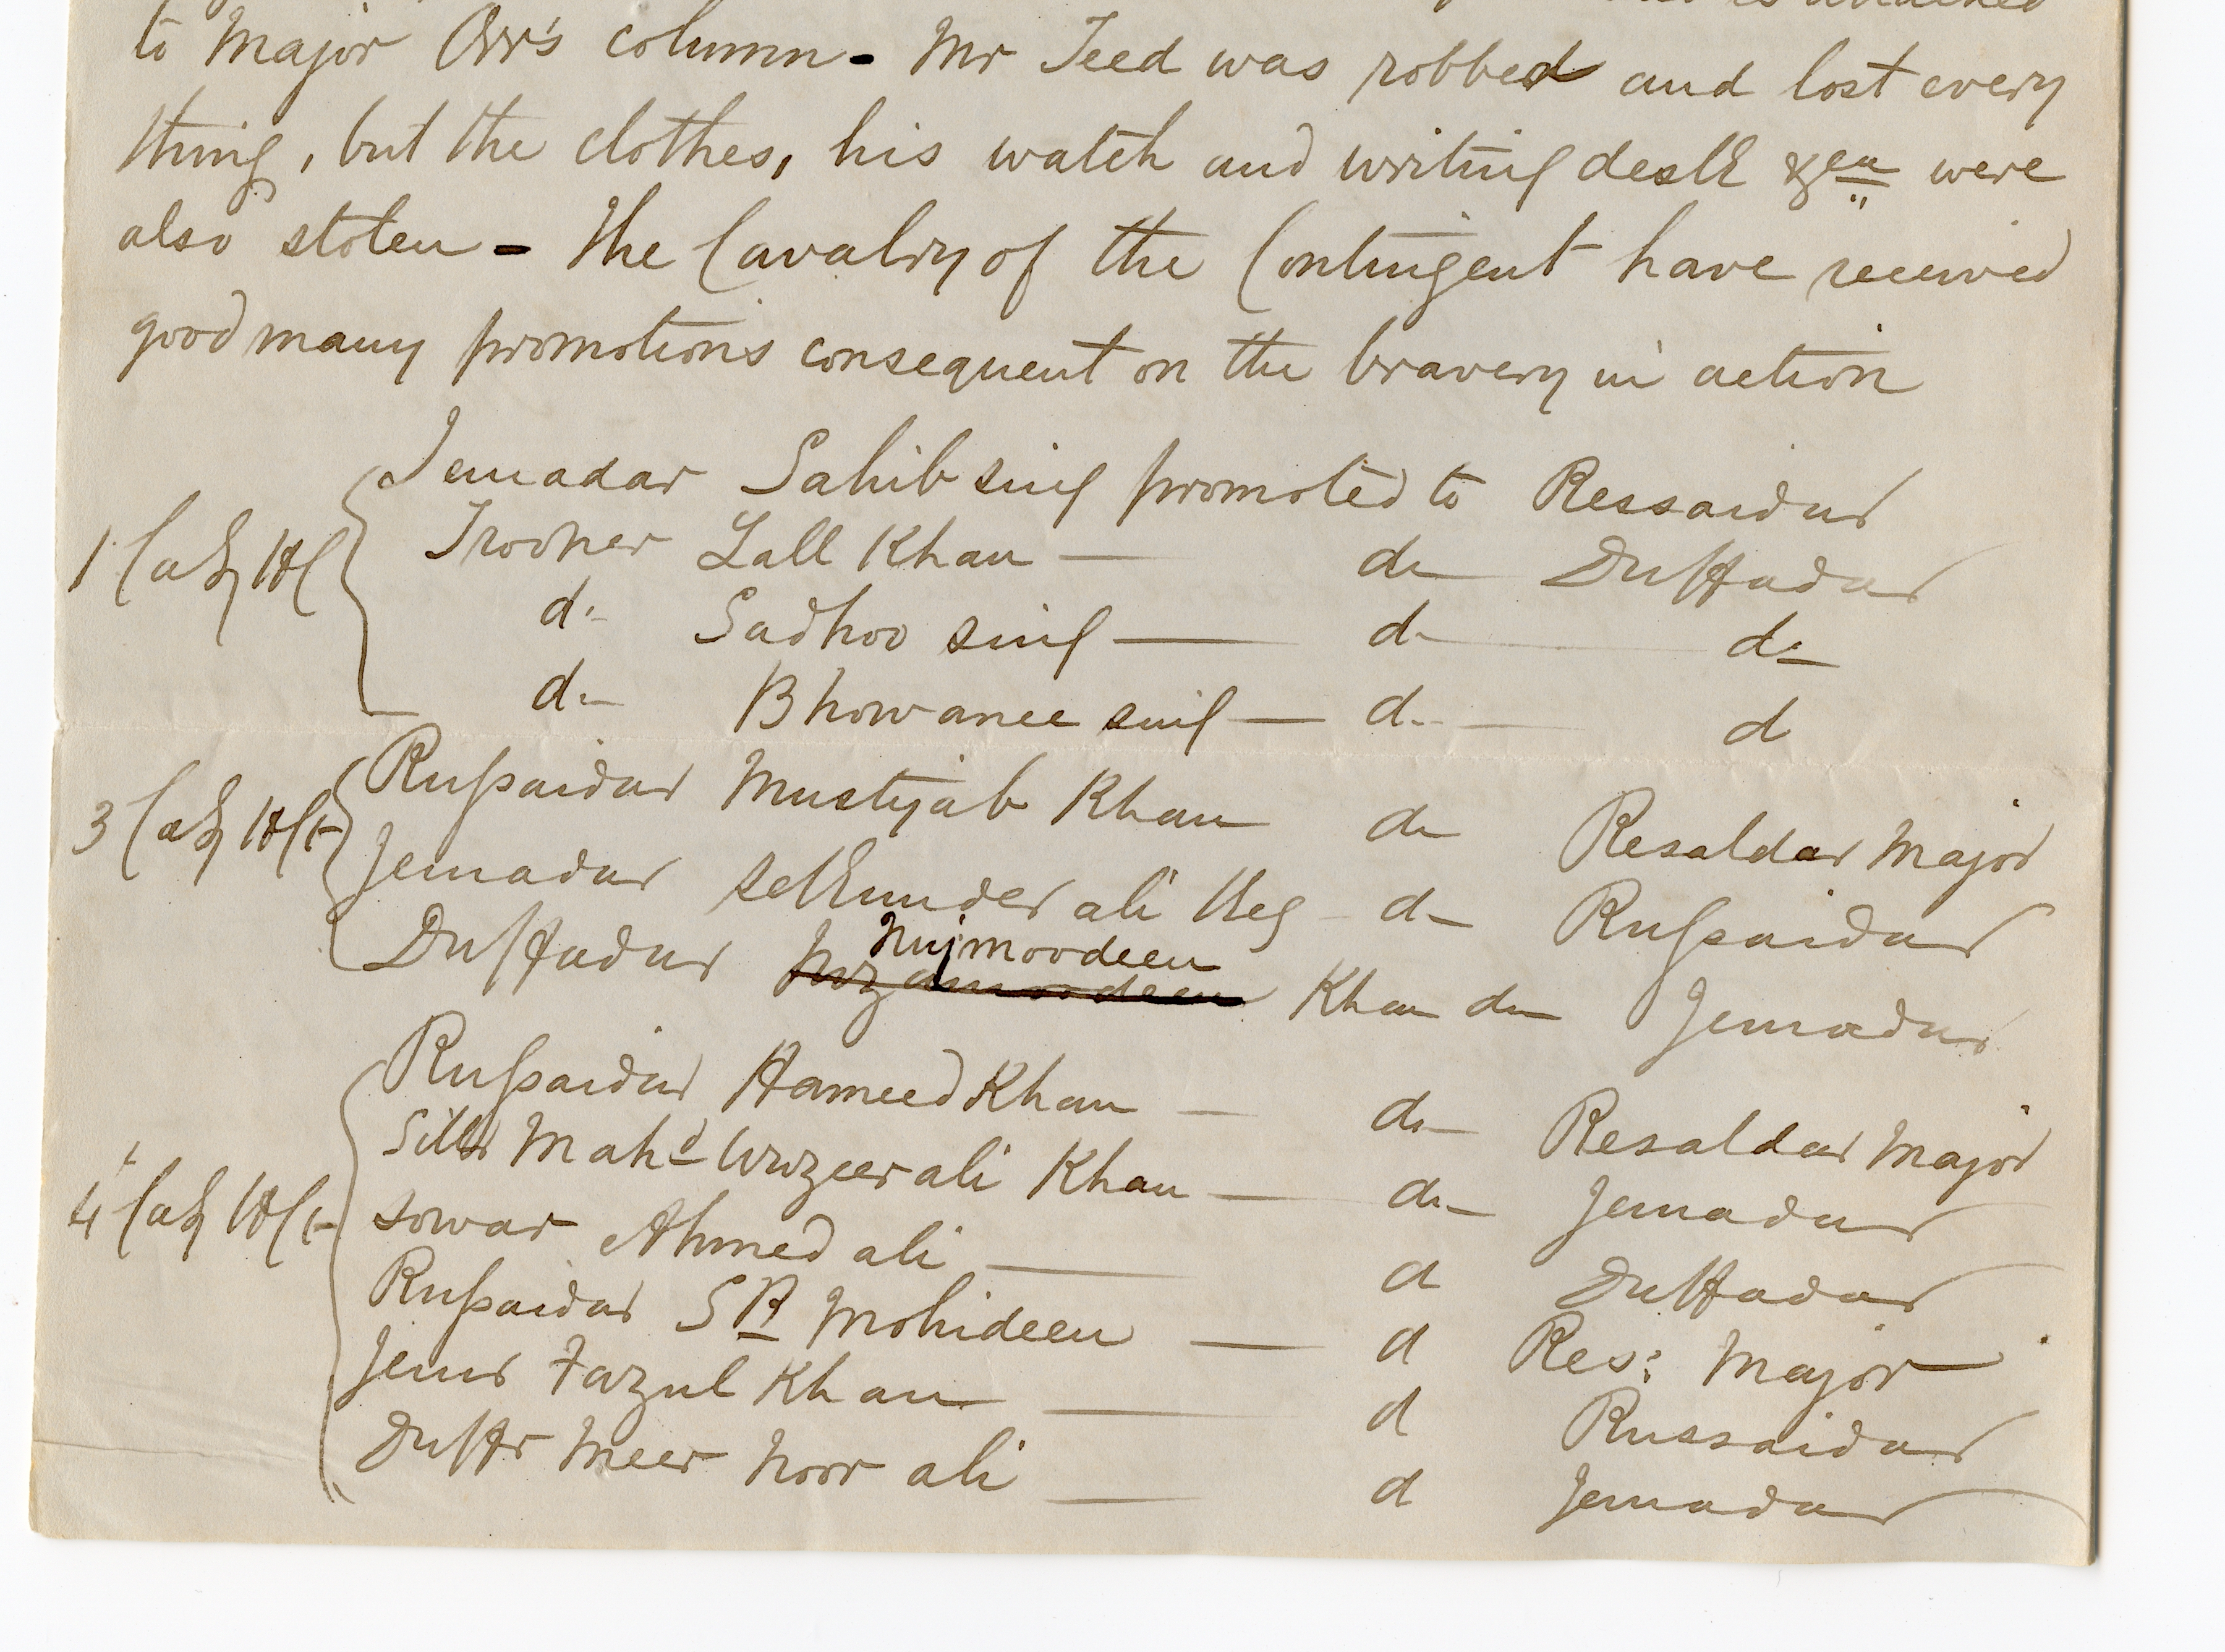 to Major Orr's column - Mr Teed was robbed and lost every
thing, but the clothes, his watch and writing desk &ca were
also stolen - The Cavalry of the Contingent have received
good many promotions consequent on the bravery in action
Jemadar Sahib sing promoted to Ressaidar
1 Cavy HC Trooper Lall Khan — do Duffadar
do Sadhoo sing — do do
do Bhowanee sing — do d
Russaidar Mustijab Khan do Resaldar Major
3 Cavy HCt Jemadar Sekunder ali Beg do Russaidar
Duffadar Nujmoodeen Khan do Jemadar
Russaidar Hameed Khan — do Resaldar Major
Mahd Wuzeer ali Khan — do Jemadar
4 Cavy HCt sowar Ahmed ali — d Duffadar
Russaidar SK Mohideen — d Res: Major
Jemr Fazul Khan — d Russaidar
Duffr Meer Noor ali — d Jemadar